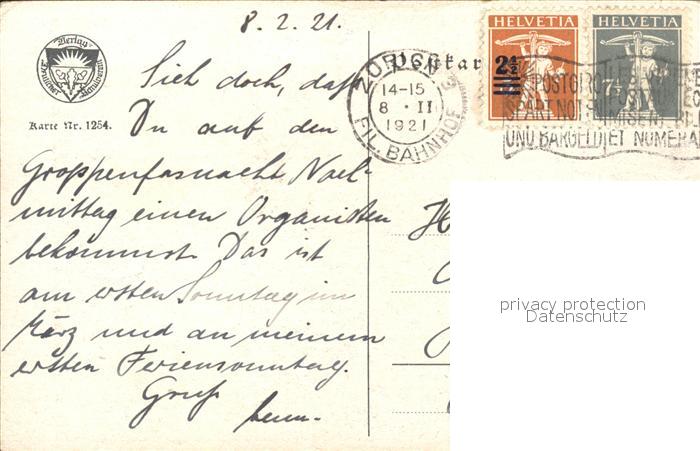 8. 2. 21.
Verlag
Deutscher
Karte Nr. 1254.
Sieh doch, daß
Du auf den
Groppenfasnacht Nach-
mittag einen Organisten
bekommst. Das ist
am ersten Sonntag im
März und an meinem
ersten Feriensonntag.
Gruß
Postkarte
ZÜRICH
14-15
8 · II
1921
FIL. BAHNHOF
HELVETIA
2½
HELVETIA
7½
POSTGIRO
SPART NOTEN
UND BARGELD
ET NUMERA
privacy protection
Datenschutz